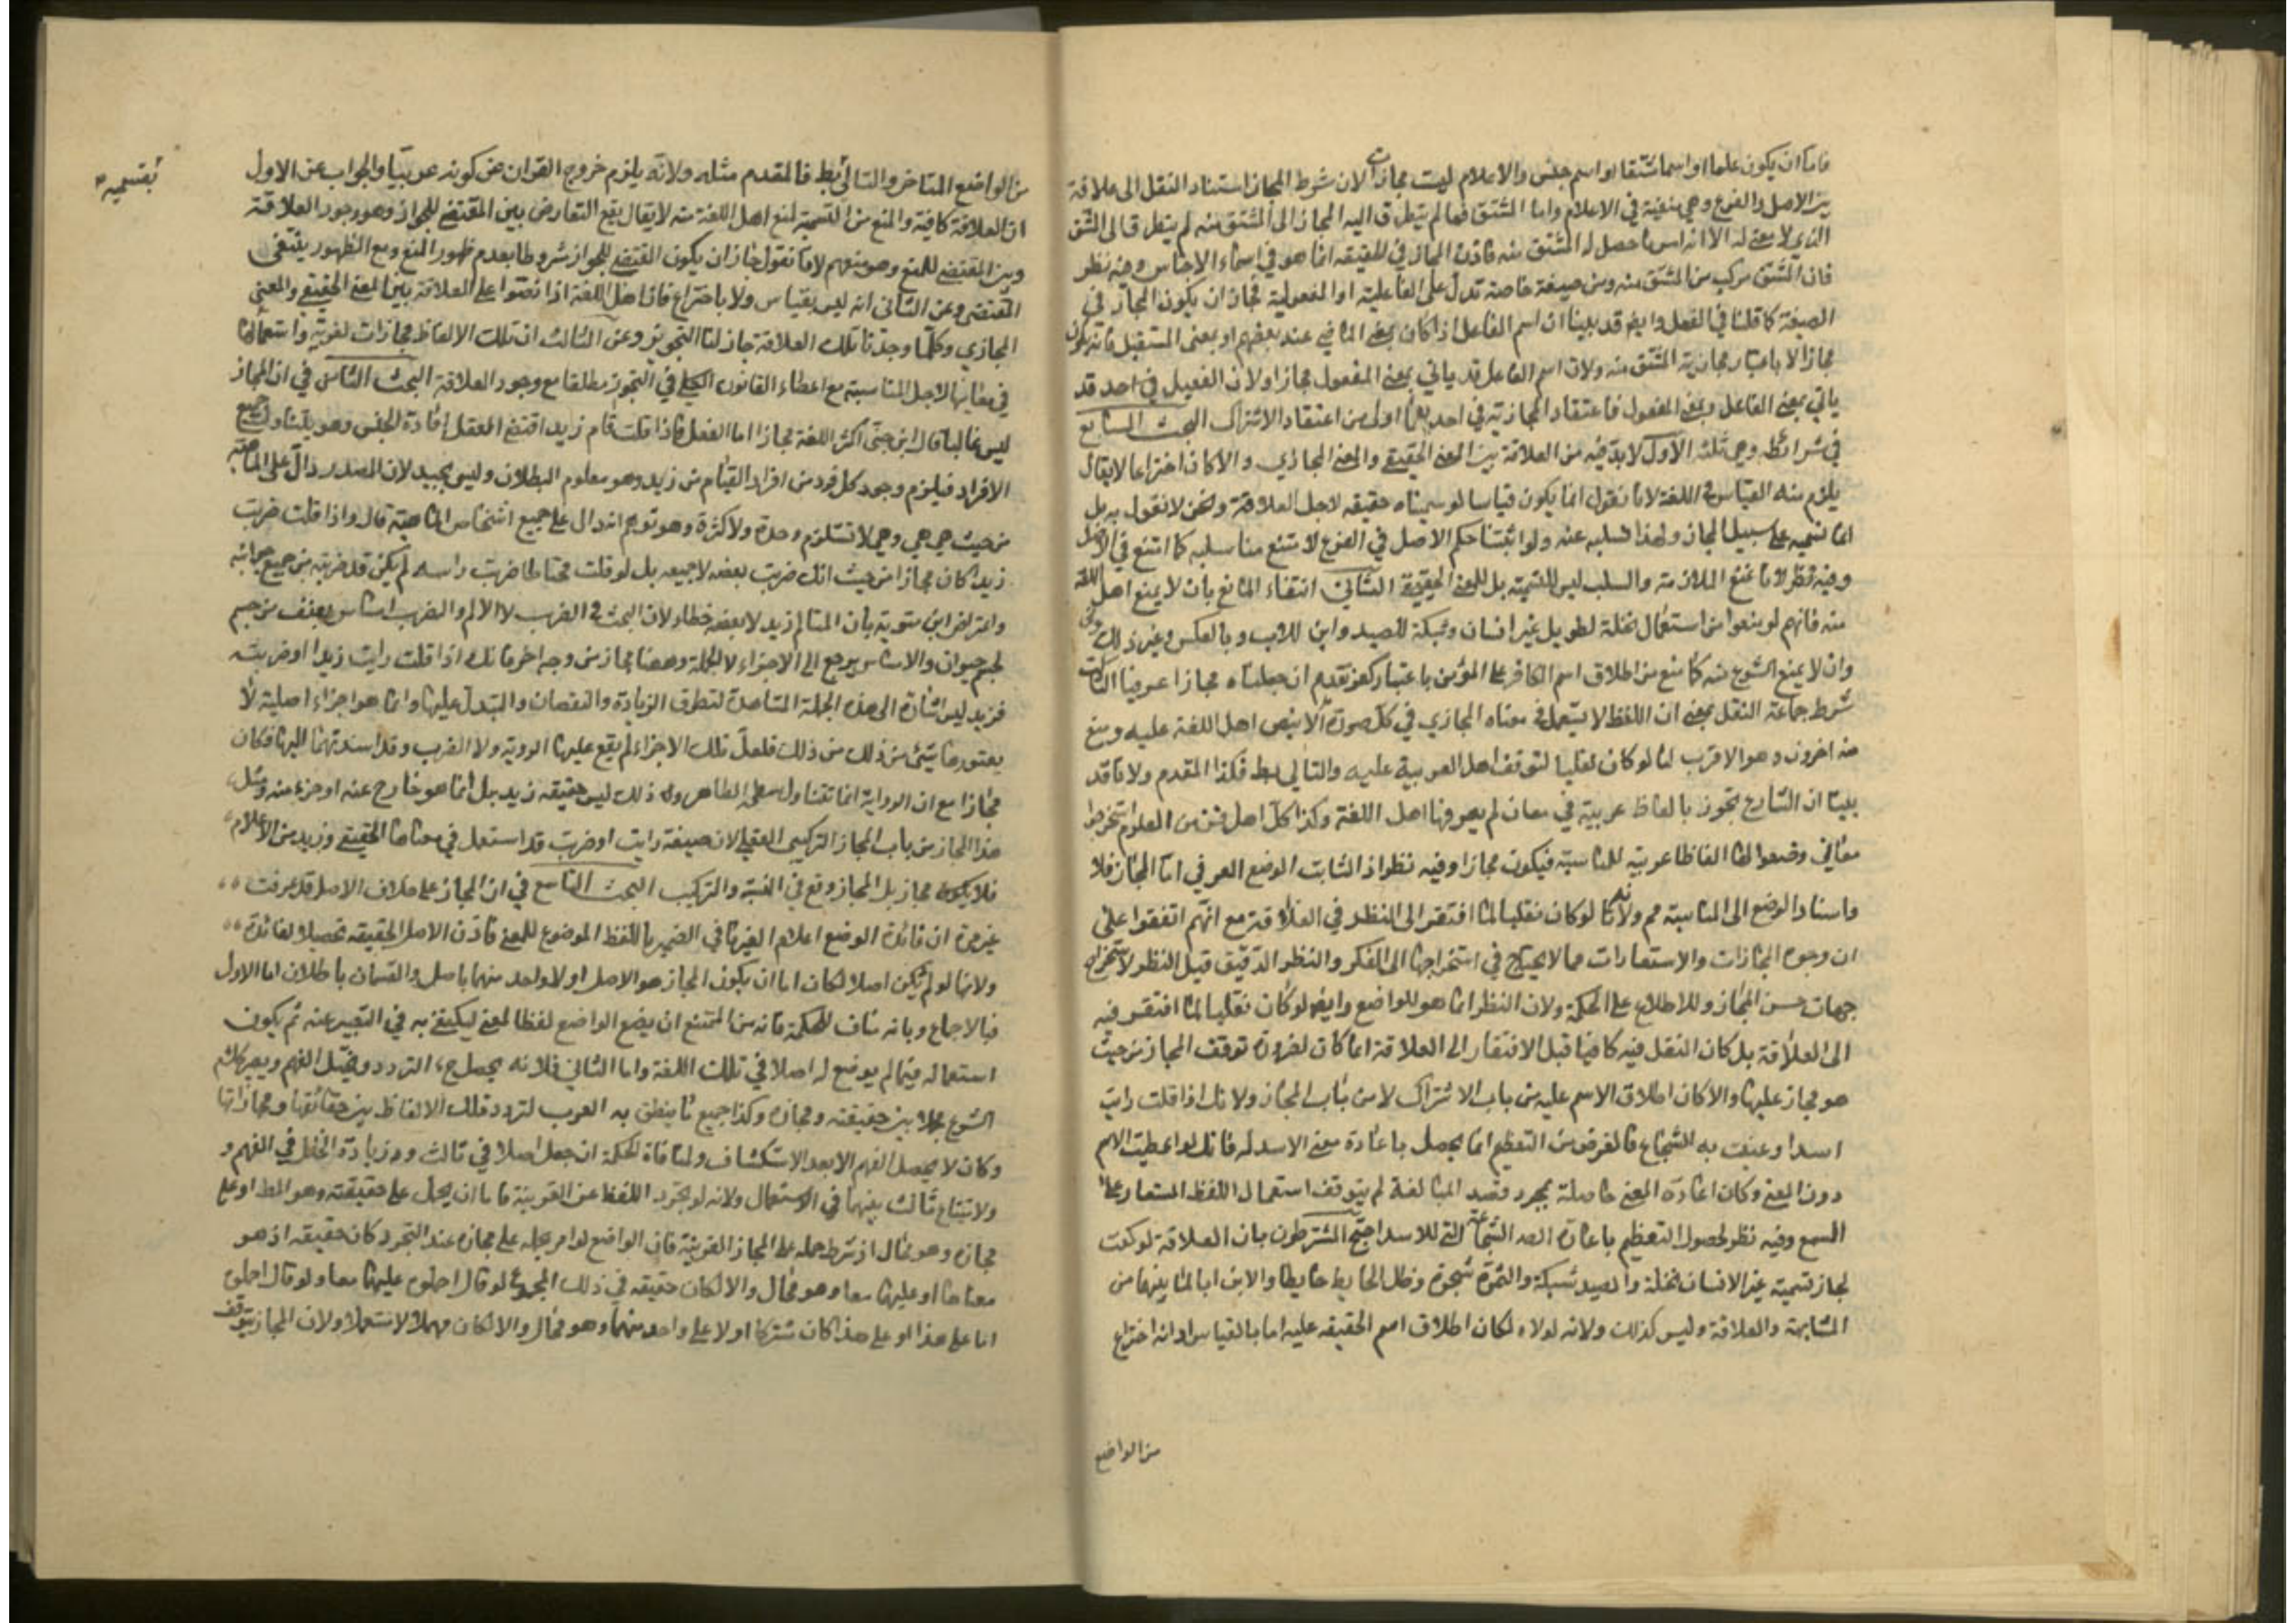 فاما ان يكون علما او اسما مشتقا او اسم جنس والاعلام ليست مجازات لان شرط المجاز استناد النقل الى علاقة
بين الاصل والفرع وهي منفية في الاعلام واما المشتق فما لم يتطرق اليه المجاز الى المشتق منه لم يتطرق الى المشتق
الذي لا معنى له الا انه امر ما حصل له المشتق منه فاذن المجاز في الحقيقه انما هو في اسماء الاجناس وفيه نظر
فان المشتق مركب من المشتق منه ومن صيغة خاصة تدل على الفاعلية او المفعولية فجاز ان يكون المجاز في
الصيغة كما قلنا في الفعل وايض قد بينا ان اسم الفاعل اذا كان بمعنى الماضي عند بعضهم او بمعنى المستقبل فانه يكون
مجازا لا باعتبار مجازية المشتق منه ولان اسم الفاعل قد ياتي بمعنى المفعول مجازا ولان الفعيل في احد قد
ياتي بمعنى الفاعل وبمعنى المفعول فاعتقاد المجازية في احدهما اولى من اعتقاد الاشتراك البحث السابع
في شرائطه وهي ثلثة الاول لا بد فيه من العلاقة بين المعنى الحقيقي والمعنى المجازي والا كان اختراعا لا يقال
يلزم منه القياس في اللغة لانا نقول انما يكون قياسا لو سميناه حقيقه لاجل العلاقة ونحن لا نقول به بل
انما نسميه على سبيل المجاز ولهذا نسلبه عنه ولو اثبتنا حكم الاصل في الفرع لامتنع منا سلبه كما امتنع في الاصل
وفيه نظر لانا نمنع الملازمة والسلب ليس للتسمية بل للمعنى الحقيقي الثاني انتفاء المانع بان لا يمنع اهل اللغة
منه فانهم لو منعوا من استعمال نخلة لطويل غير انسان وشبكة للصيد وابن للاب وبالعكس وغير ذلك
وان لا يمنع الشرع منه كما منع من اطلاق اسم الكافر على المؤمن باعتبار كفر تقدم ان جعلناه مجازا عرفيا الثالث
شرط جماعة النقل بمعنى ان اللفظ لا يستعمل في معناه المجازي في كل صورة الا بنص اهل اللغة عليه ومنع
منه اخرون وهو الاقرب لنا لو كان نقليا لتوقف اهل العربية عليه والتالي بط فكذا المقدم ولانا قد
بينا ان الشارع تجوز بالفاظ عربية في معان لم يعرفها اهل اللغة وكذا كل اهل فن من العلوم استخرجوا
معاني وضعوا لها الفاظا عربية للمناسبة فيكون مجازا وفيه نظر اذ الثابت الوضع العرفي اما المجاز فلا
واسناد الوضع الى المناسبة مم ولانه لو كان نقليا لما افتقر الى النظر في العلاقة مع انهم اتفقوا على
ان وجوه المجازات والاستعارات مما لا يحتاج في استخراجها الى الفكر والنظر الدقيق قيل النظر لاستخراج
جهات حسن المجاز وللاطلاع على الحكمة ولان النظر انما هو للواضع وايض لو كان نقليا لما افتقر فيه
الى العلاقة بل كان النقل فيه كافيا قبل الافتقار الى العلاقة انما كان لضرورة توقف المجاز من حيث
هو مجاز عليها والا كان اطلاق الاسم عليه من باب الاشتراك لا من باب المجاز ولانك اذا قلت رايت
اسدا وعنيت به الشجاع فالغرض من التعظيم انما يحصل باعارة معنى الاسد له فانك لو اعطيت الاسم
دون المعنى وكان اعارة المعنى حاصلة بمجرد قصد المبالغة لم يتوقف استعمال اللفظ المستعار على
السمع وفيه نظر لحصول التعظيم باعارة الشجاعة التي للاسد احتج المشترطون بان العلاقة لو كفت
لجاز تسمية غير الانسان نخلة والصيد شبكة والثمرة شجرة وظل الحايط حايطا والابن ابا لما بينهما من
المشابهة والعلاقة وليس كذلك ولانه لولاه لكان اطلاق اسم الحقيقه عليه اما بالقياس او انه اختراع
من الواضع
من الواضع المتاخر والتالي بط فالمقدم مثله ولانه يلزم خروج القران عن كونه عربيا والجواب عن الاول
ان العلاقة كافية والمنع من التسمية لمنع اهل اللغة منه لا يقال يقع التعارض بين المقتضي للجواز وهو وجود العلاقة
وبين المقتضي للمنع وهو منعهم لانا نقول جاز ان يكون المقتضي للجواز مشروطا بعدم ظهور المنع ومع الظهور ينتفى
المقتضى وعن الثانى انه ليس بقياس ولا باختراع فان اهل اللغة اذا نصوا على العلاقة بين المعنى الحقيقي والمعنى
المجازي وكلما وجدنا تلك العلاقة جاز لنا التجويز وعن الثالث ان تلك الالفاظ مجازات لغوية واستعمالها
في معانيها لاجل المناسبة مع اعطاء القانون الكلي في التجوز مطلقا مع وجود العلاقة البحث الثامن في ان المجاز
ليس غالبا قال ابن جنى اكثر اللغة مجاز اما الفعل فاذا قلت قام زيد اقتضى الفعل افادة الجنس وهو يتناول جميع
الافراد فيلزم وجود كل فرد من افراد القيام من زيد وهو معلوم البطلان وليس بجيد لان المصدر دال على الماهية
من حيث هي هي وهي لا تستلزم وحدة ولا كثرة وهو توهم انه دال على جميع اشخاص الماهية قال واذا قلت ضربت
زيدا كان مجازا من حيث انك ضربت بعضه لا جميعه بل لو قلت محتاطا ضربت راسه لم يكن قد ضربته من جميع جوانبه
واعترض ابن متويه بان المتالم زيد لا بعضه خطاء لان البحث في الضرب لا الالم والضرب امساس بعنف من جسم
لجسم حيوان والامساس يرجع الى الاجزاء لا الجملة وههنا مجاز من وجه اخر فانك اذا قلت رايت زيدا او ضربته
فزيد ليس اشارة الى هذه الجملة المشاهدة لتطرق الزيادة والنقصان والتبدل عليها وانما هو اجزاء اصلية لا
يعتورها شيئ من ذلك فلعل تلك الاجزاء لم يقع عليها الروية ولا الضرب وقد اسندتهما اليها فكان
مجازا مع ان الرواية انما تتناول سطحه الظاهر وذلك ليس حقيقه زيد بل انما هو خارج عنه او جزء منه ومثل
هذا المجاز من باب المجاز التركيبى العقلي لان صيغة رايت او ضربت قد استعمل في معناها الحقيقي وزيد من الاعلام
فلا يكون مجاز بل المجاز وقع في النسبة والتركيب البحث التاسع في ان المجاز على خلاف الاصل قد عرفت
غير مرة ان فائدة الوضع اعلام الغير ما في الضمير باللفظ الموضوع للمعنى فاذن الاصل الحقيقه تحصيلا لفائدة
ولانها لو لم تكن اصلا لكان اما ان يكون المجاز هو الاصل او لا واحد منهما باصل والقسمان باطلان اما الاول
فبالاجماع وبانه مناف للحكمة فانه من الممتنع ان يضع الواضع لفظا لمعنى ليكتفي به في التعبير عنه ثم يكون
استعماله فيما لم يوضع له اصلا في تلك اللغة واما الثاني فلانه يحصل ح التردد ويختل الفهم ويصير كلام
الشرع مجملا بين حقيقته ومجازه وكذا جميع ما ينطق به العرب لتردد تلك الالفاظ بين حقائقها ومجازاتها
وكان لا يحصل الفهم الا بعد الاستكشاف ولمنافاة الحكمة ان جعل اصلا في ثالث وزيادة الخلل في الفهم و
ولامتناع ثالث بينهما في الاستعمال ولانه لو تجرد اللفظ عن القرينة فاما ان يحمل على حقيقته وهو المط او على
مجازه وهو محال اذ شرط حمله على المجاز القرينة فان الواضع لو امر بحمله على مجازه عند التجرد كان حقيقه اذ هو
معناها او عليهما معا وهو محال والا لكان حقيقه في ذلك المجموع لو قال احملوه عليهما معا ولو قال احملوه
اما على هذا او على هذا كان مشتركا او لا على واحد منهما وهو محال والا لكان مهملا لا مستعملا ولان المجاز يتوقف